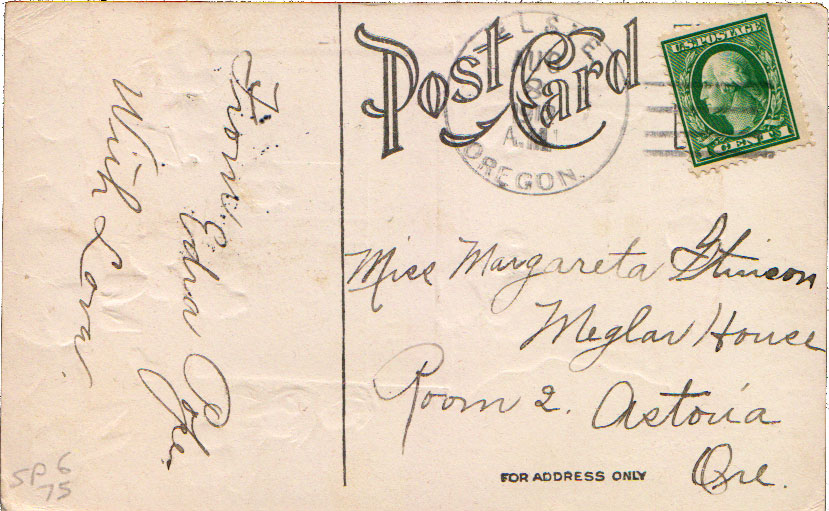 From
Edra
With Love
Post Card
AUG
8
A.M.
OREGON.
U.S. POSTAGE
1 CENT 1
Miss Margareta Stinson
Meglar House
Room 2. Astoria
Ore.
FOR ADDRESS ONLY
SP 6
75